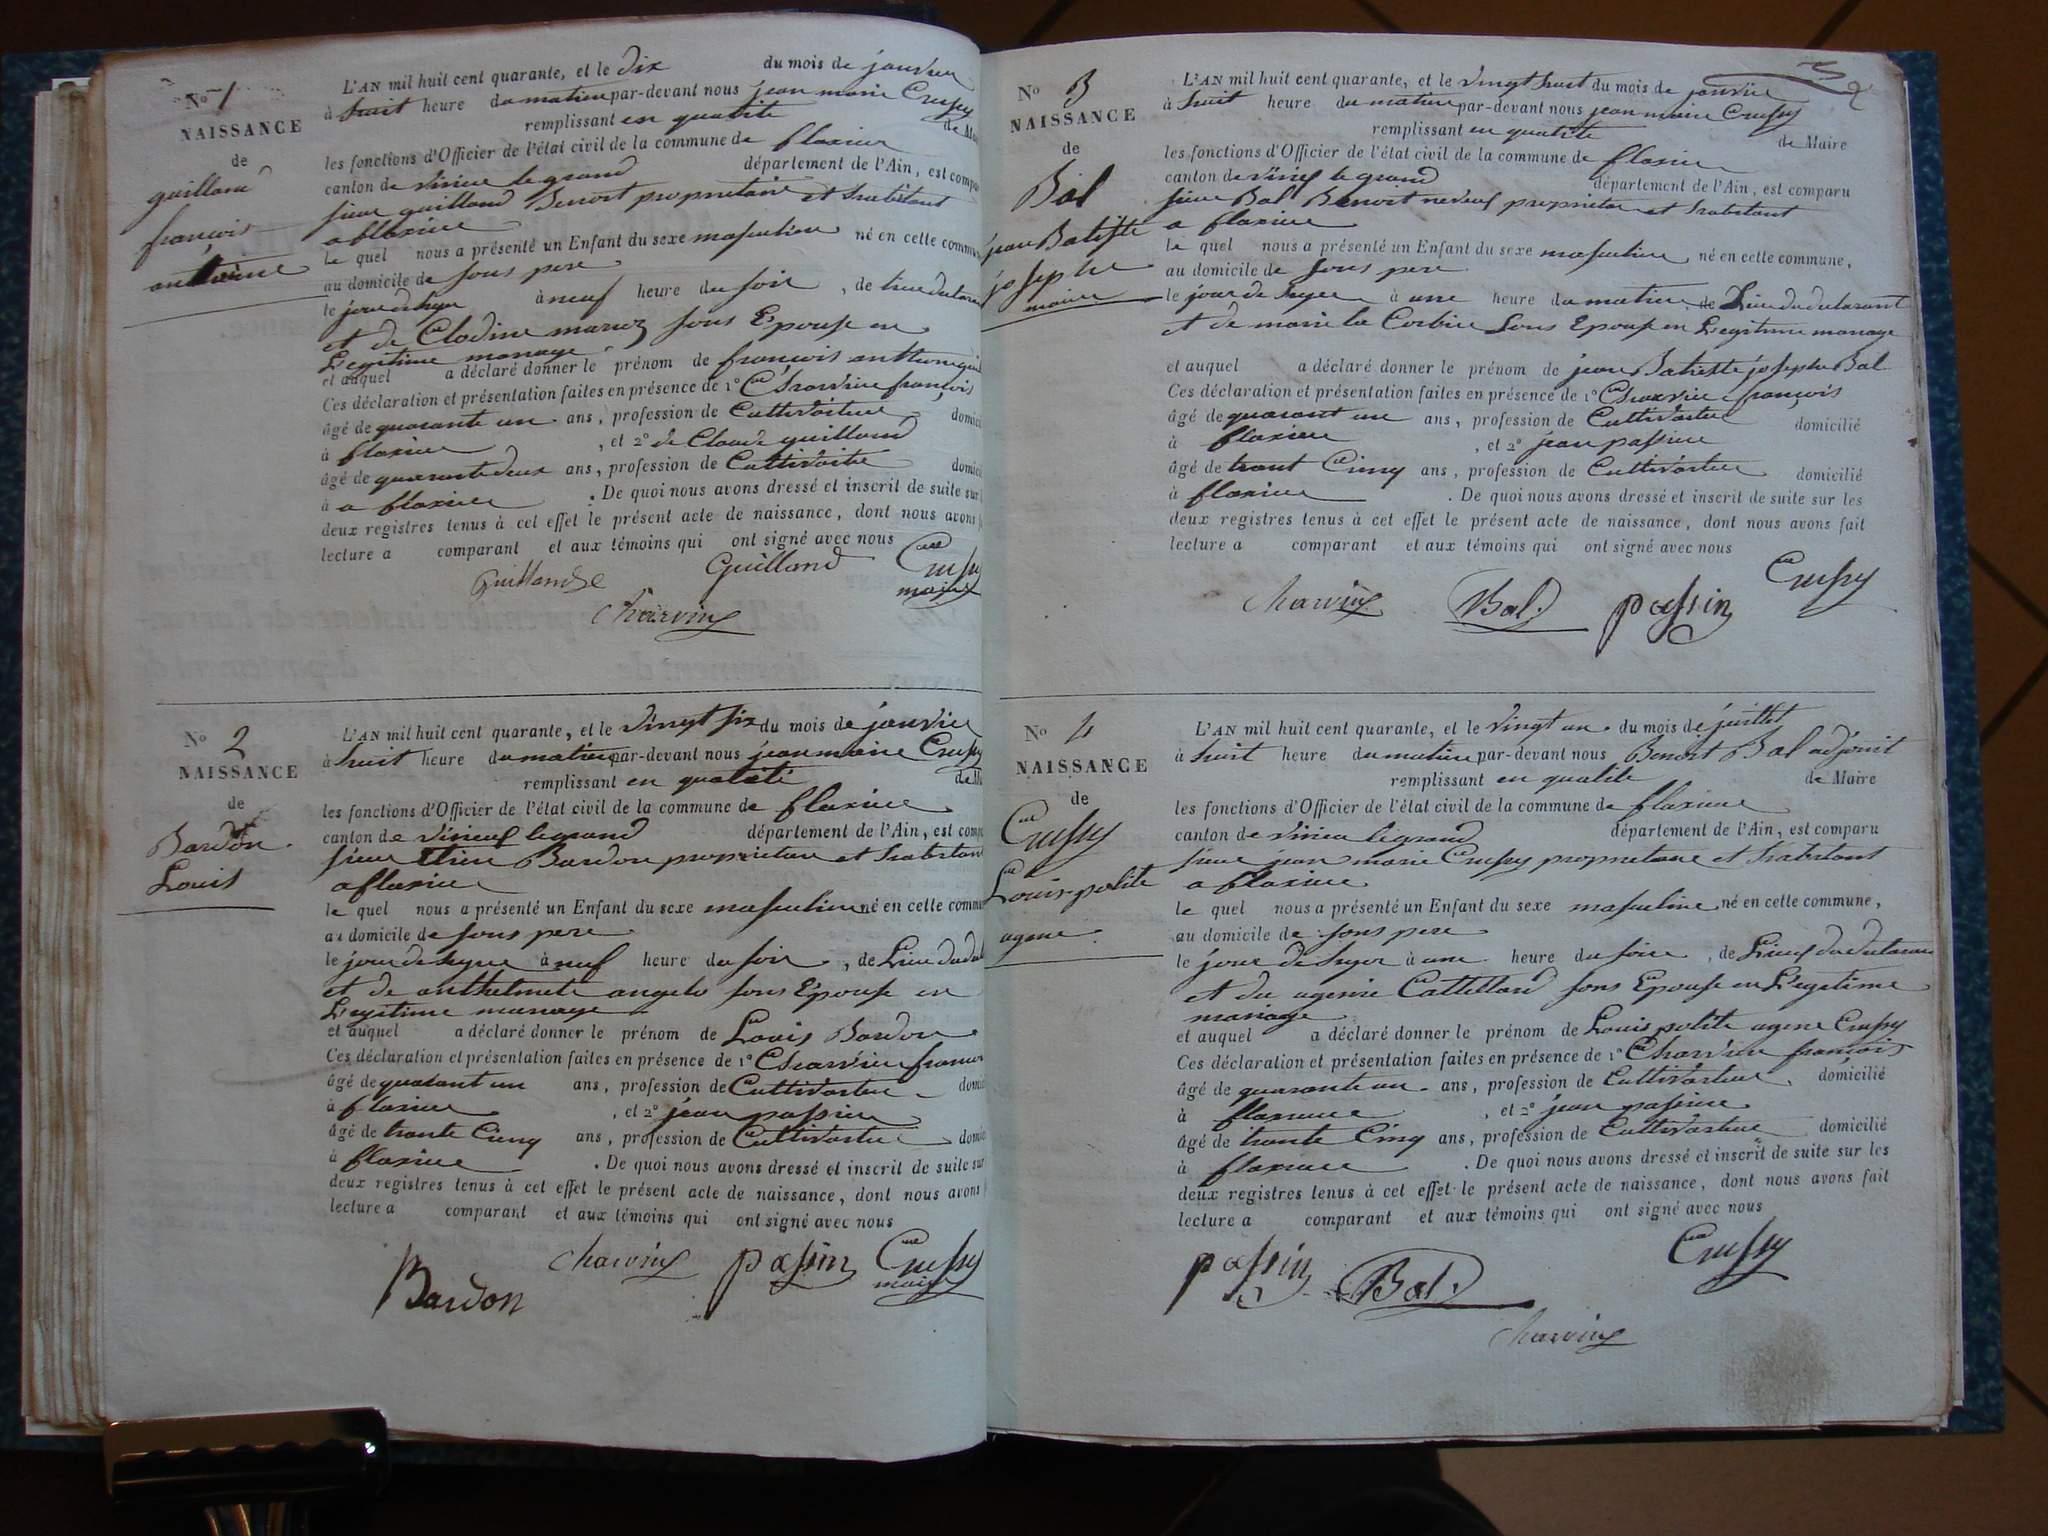 No 1
NAISSANCE
de
guilland
françois
anthoine
L'AN mil huit cent quarante, et le dix du mois de janvier
à huit heure du matin par-devant nous jean marie Crussy
remplissant en qualité de Mai
les fonctions d'Officier de l'état civil de la commune de flaxieu
canton de virieu le grand département de l'Ain, est compa
sieur guilland Benoit proprietaire et habitant
a flaxieu
le quel nous a présenté un Enfant du sexe masculin né en cette commun
au domicile de sons pere
le jour dhyer à neuf heure du soir, de
et de Clodine sons Epouse en
Legitime mariage
et auquel a déclaré donner le prénom de françois anthoine
Ces déclaration et présentation faites en présence de 1o Charvin françois
âgé de quarante un ans, profession de Cultivateur domici
à flaxieu, et 2o de Claude guilland
âgé de quarante deux ans, profession de Cultivateur domici
à a flaxieu. De quoi nous avons dressé et inscrit de suite sur
deux registres tenus à cet effet le présent acte de naissance, dont nous avons
lecture a comparant et aux témoins qui ont signé avec nous
Guilland Crussy
maire
Charvin
No 2
NAISSANCE
de
Bardon
Louis
L'AN mil huit cent quarante, et le vingt six du mois de janvier
à huit heure du matin par-devant nous jean marie Crussy
remplissant en qualité de Ma
les fonctions d'Officier de l'état civil de la commune de flaxieu
canton de virieu le grand département de l'Ain, est comp
sieur Bardon proprietaire et habitant
a flaxieu
le quel nous a présenté un Enfant du sexe masculin né en cette commu
au domicile de sons pere
le jour de hyer à neuf heure du soir, de
et de anthelmete angelo sons Epouse en
Legitime mariage
et auquel a déclaré donner le prénom de Louis Bardon
Ces déclaration et présentation faites en présence de 1o Charvin françois
âgé de quarant un ans, profession de Cultivateur domici
à flaxieu, et 2o jean passin
âgé de trante Cinq ans, profession de Cultivateur domici
à flaxieu. De quoi nous avons dressé et inscrit de suite sur
deux registres tenus à cet effet le présent acte de naissance, dont nous avons
lecture a comparant et aux témoins qui ont signé avec nous
Charvin passin Crussy
maire
Bardon
2
No 3
NAISSANCE
de
Bal
jean Batiste
josephe
L'AN mil huit cent quarante, et le vingt huit du mois de janvier
à huit heure du matin par-devant nous jean marie Crussy
remplissant en qualité de Maire
les fonctions d'Officier de l'état civil de la commune de flaxieu
canton de virieu le grand département de l'Ain, est comparu
sieur Bal Benoit neveuf proprietaire et habitant
a flaxieu
le quel nous a présenté un Enfant du sexe masculin né en cette commune,
au domicile de sons pere
le jour de hyer à une heure du matin, de Lieu du declarant
et de marie la Corbiere sons Epouse en Legitime mariage
et auquel a déclaré donner le prénom de jean Batiste josephe Bal
Ces déclaration et présentation faites en présence de 1o Charvin françois
âgé de quarant un ans, profession de Cultivateur domicilié
à flaxieu, et 2o jean passin
âgé de trant Cinq ans, profession de Cultivateur domicilié
à flaxieu. De quoi nous avons dressé et inscrit de suite sur les
deux registres tenus à cet effet le présent acte de naissance, dont nous avons fait
lecture a comparant et aux témoins qui ont signé avec nous
Charvin Bal passin Crussy
No 4
NAISSANCE
de
Crussy
Louis polite
agene
L'AN mil huit cent quarante, et le vingt un du mois de juillet
à huit heure du matin par-devant nous Benoit Bal adjoint
remplissant en qualité de Maire
les fonctions d'Officier de l'état civil de la commune de flaxieu
canton de virieu le grand département de l'Ain, est comparu
sieur jean marie Crussy proprietaire et habitant
a flaxieu
le quel nous a présenté un Enfant du sexe masculine né en cette commune,
au domicile de sons pere
le jour de hyer à une heure du soir, de
et du agenie Cattelland sons Epouse en Legitime
mariage
et auquel a déclaré donner le prénom de Louis polite agene Crussy
Ces déclaration et présentation faites en présence de 1o Charvin françois
âgé de quarante un ans, profession de Cultivateur domicilié
à flaxieu, et 2o jean passin
âgé de trante Cinq ans, profession de Cultivateur domicilié
à flaxieu. De quoi nous avons dressé et inscrit de suite sur les
deux registres tenus à cet effet le présent acte de naissance, dont nous avons fait
lecture a comparant et aux témoins qui ont signé avec nous
passin Bal Crussy
Charvin